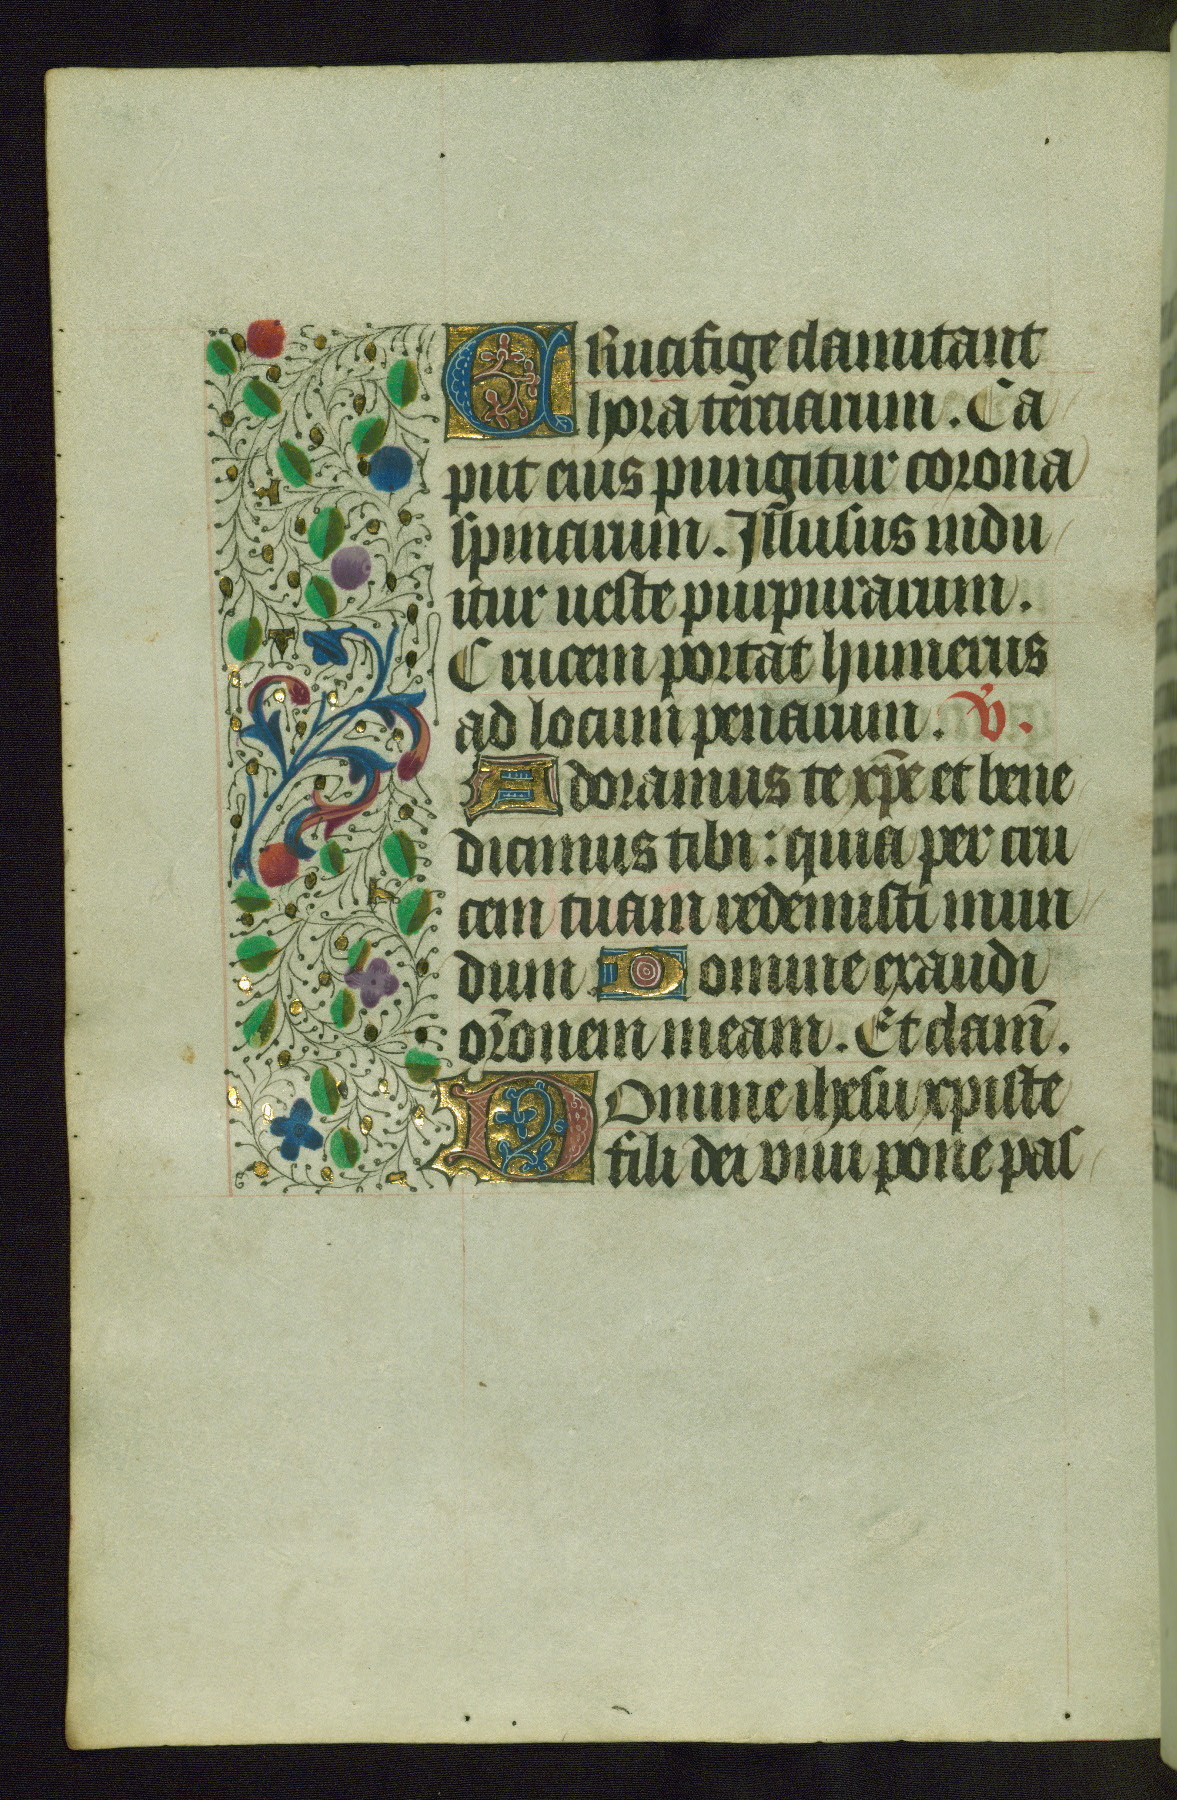 CRucifige clamitant
hora terciarum. Ca
put eius pungitur corona
spinarum. Illusus indu
itur ueste purpurarum.
Crucem portat humerus
ad locum penarum. V̄.
Adoramus te xp̄e et bene
dicimus tibi: quia per cru
cem tuam redemisti mun
dum Domine exaudi
or̄onem meam. Et clam̄.
DOmine ihesu xpiste
fili dei viui pone pas